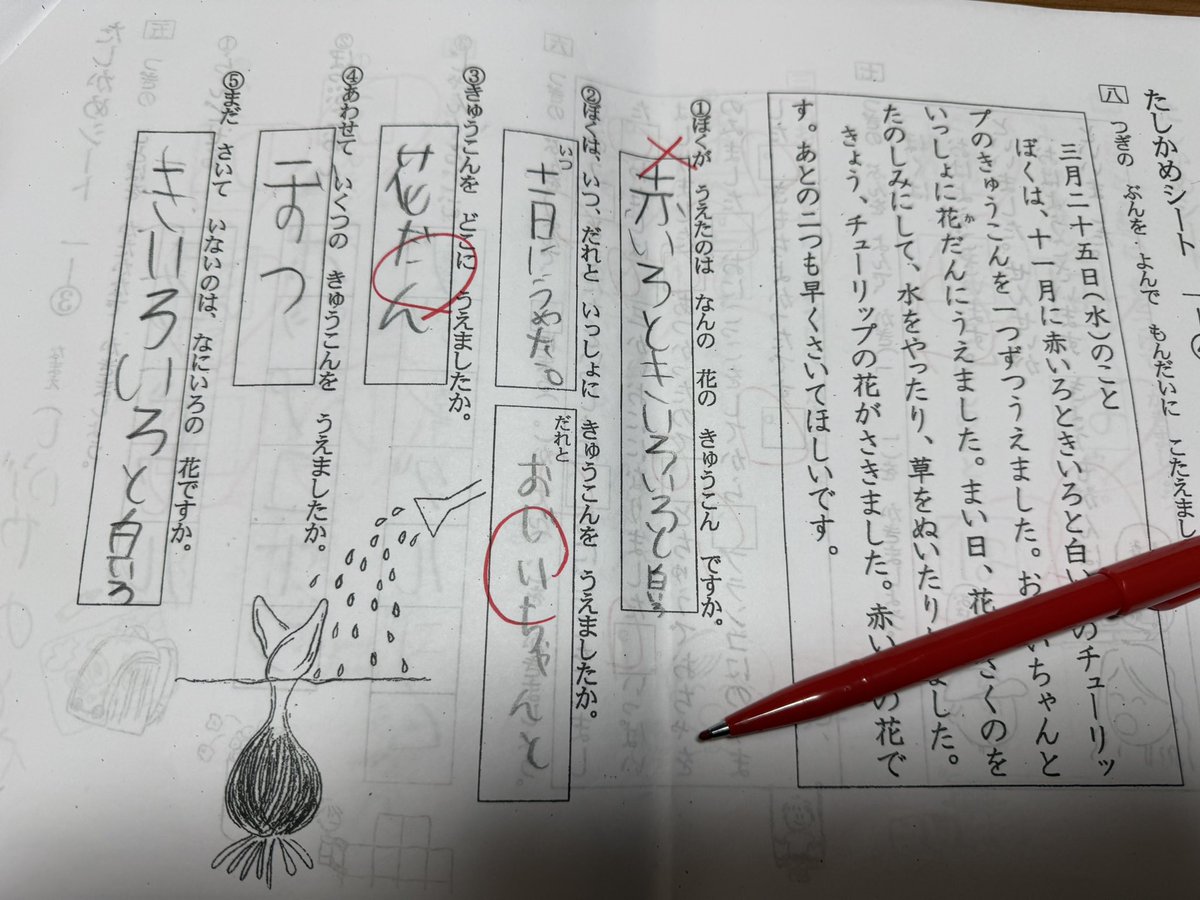 たしかめシート
八 つぎの ぶんを よんで もんだいに こたえまし
三月二十五日(水)のこと
ぼくは、十一月に赤いろときいろと白い のチューリッ
プのきゅうこんを一つずつうえました。お いちゃんと
いっしょに花だんにうえました。まい日、花 くのを
たのしみにして、水をやったり、草をぬいたり ました。
きょう、チューリップの花がさきました。赤い の花で
す。あとの二つも早くさいてほしいです。
①ぼくが うえたのは なんの 花の きゅうこん ですか。
赤いろときいろいろと白いろ
②ぼくは、いつ、だれと いっしょに きゅうこんを うえましたか。
いつ
だれと
おじいちゃんと
③きゅうこんを どこに うえましたか。
花だん
④あわせて いくつの きゅうこんを うえましたか。
⑤まだ さいて いないのは、なにいろの 花ですか。
きいろいろと白いろ